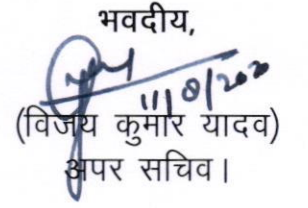 भवदीय,
11/8/2020
(विजय कुमार यादव)
अपर सचिव।